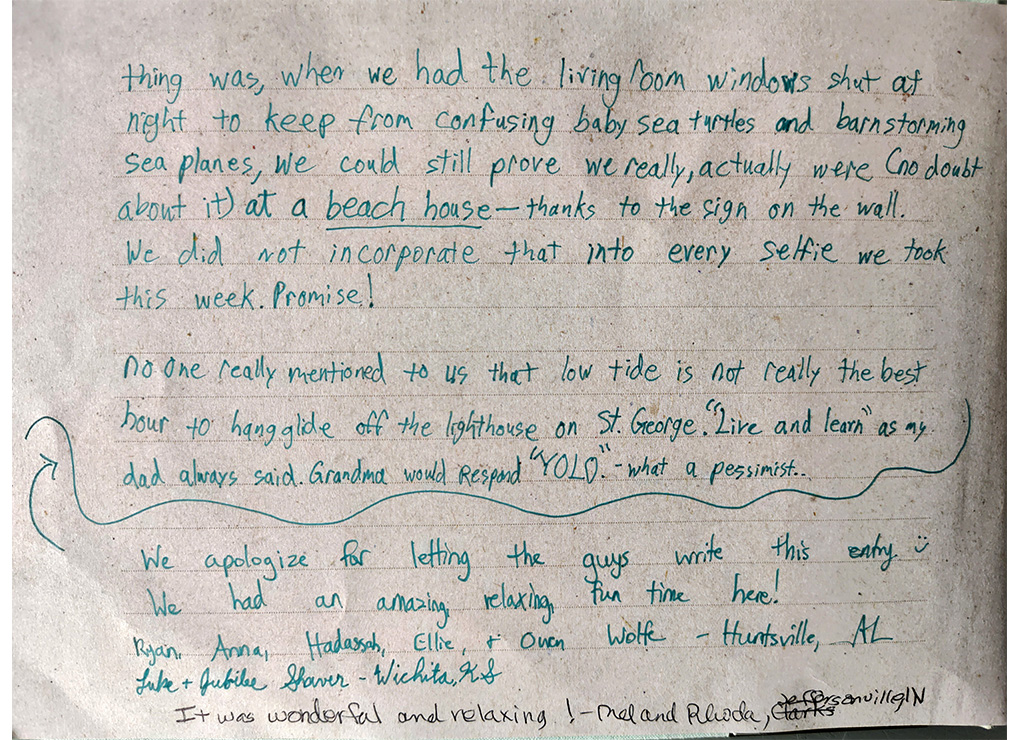 thing was, when we had the living room windows shut at
night to keep from confusing baby sea turtles and barnstorming
sea planes, we could still prove we really, actually were (no doubt
about it) at a beach house – thanks to the sign on the wall.
We did not incorporate that into every selfie we took
this week. Promise!
No one really mentioned to us that low tide is not really the best
hour to hang glide off the lighthouse on St. George. "Live and learn" as my
dad always said. Grandma would respond "YOLO." - what a pessimist..
We apologize for letting the guys write this entry. :)
We had an amazing, relaxing, fun time here!
Ryan, Anna, Hadassah, Ellie, + Owen Wolfe - Huntsville, AL
Luke + Jubilee Shaver - Wichita, KS
It was wonderful and relaxing! - Mel and Rhoda, Clarks Jeffersonville IN